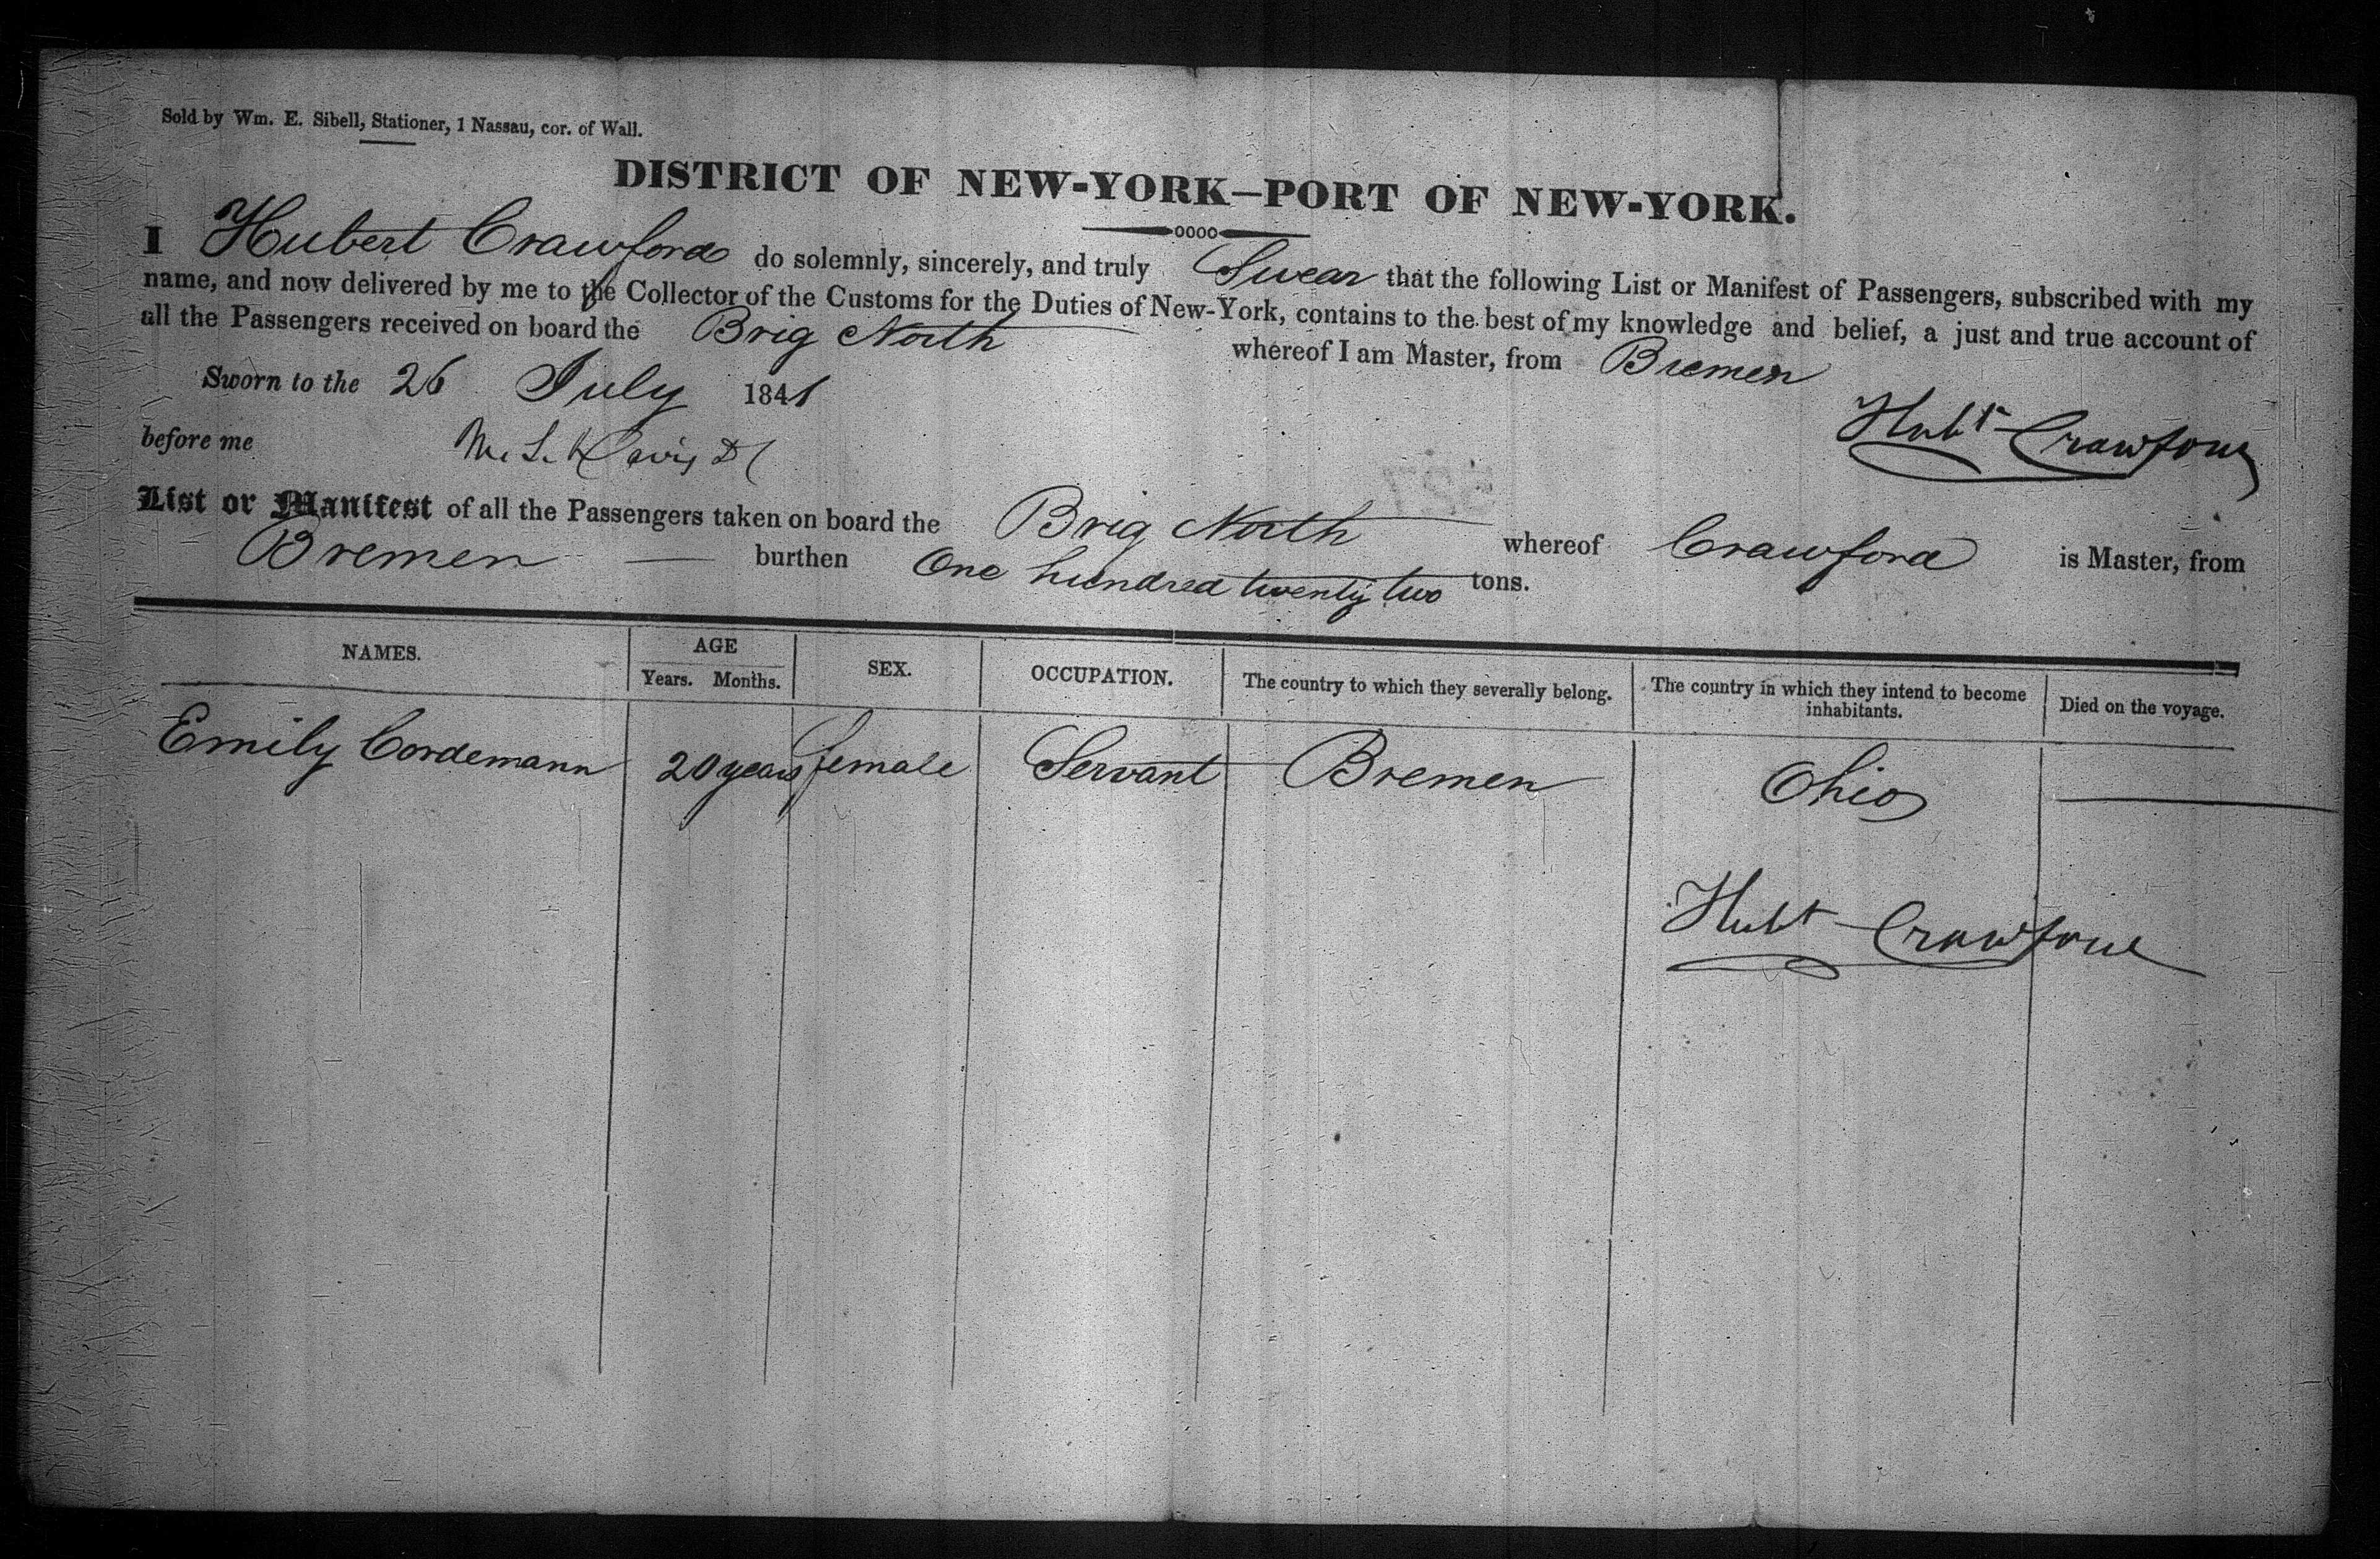 Sold by Wm. E. Sibell, Stationer, 1 Nassau, cor. of Wall.
DISTRICT OF NEW-YORK—PORT OF NEW-YORK.
I Hubert Crawford do solemnly, sincerely, and truly Swear that the following List or Manifest of Passengers, subscribed with my
name, and now delivered by me to the Collector of the Customs for the Duties of New-York, contains to the best of my knowledge and belief, a just and true account of
all the Passengers received on board the Brig North whereof I am Master, from Bremen
Sworn to the 26 July 1841
Hubt Crawford
before me M. L. Davis
List or Manifest of all the Passengers taken on board the Brig North whereof Crawford is Master, from
Bremen burthen One hundred twenty two tons.
NAMES. AGE Years. Months. SEX. OCCUPATION. The country to which they severally belong. The country in which they intend to become inhabitants. Died on the voyage.
Emily Cordemann 20 years female Servant Bremen Ohio
Hubt Crawford